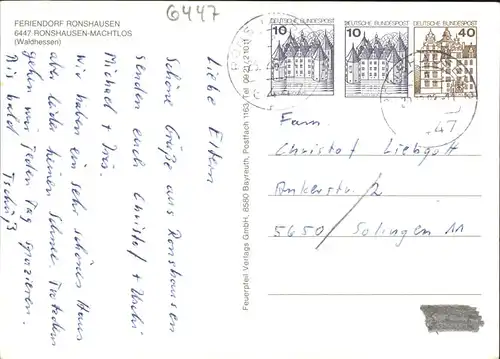 6447
FERIENDORF RONSHAUSEN
6447 RONSHAUSEN-MACHTLOS
(Waldhessen)
Liebe Eltern
Schöne Grüße aus Ronshausen
senden euch Christof + Uschi
Michael + Iris.
Wir haben ein sehr schönes Haus
aber leider keinen Schnee. Trotzdem
gehen wir jeden Tag spazieren.
Bis bald
Tschüß
Feuerpfeil Verlags GmbH, 8580 Bayreuth, Postfach 1163, Tel. 09 21/2 10 11
10
10
40
47
Fam.
Christof Liebgott
Ankerstr. 2
5650 Solingen 11